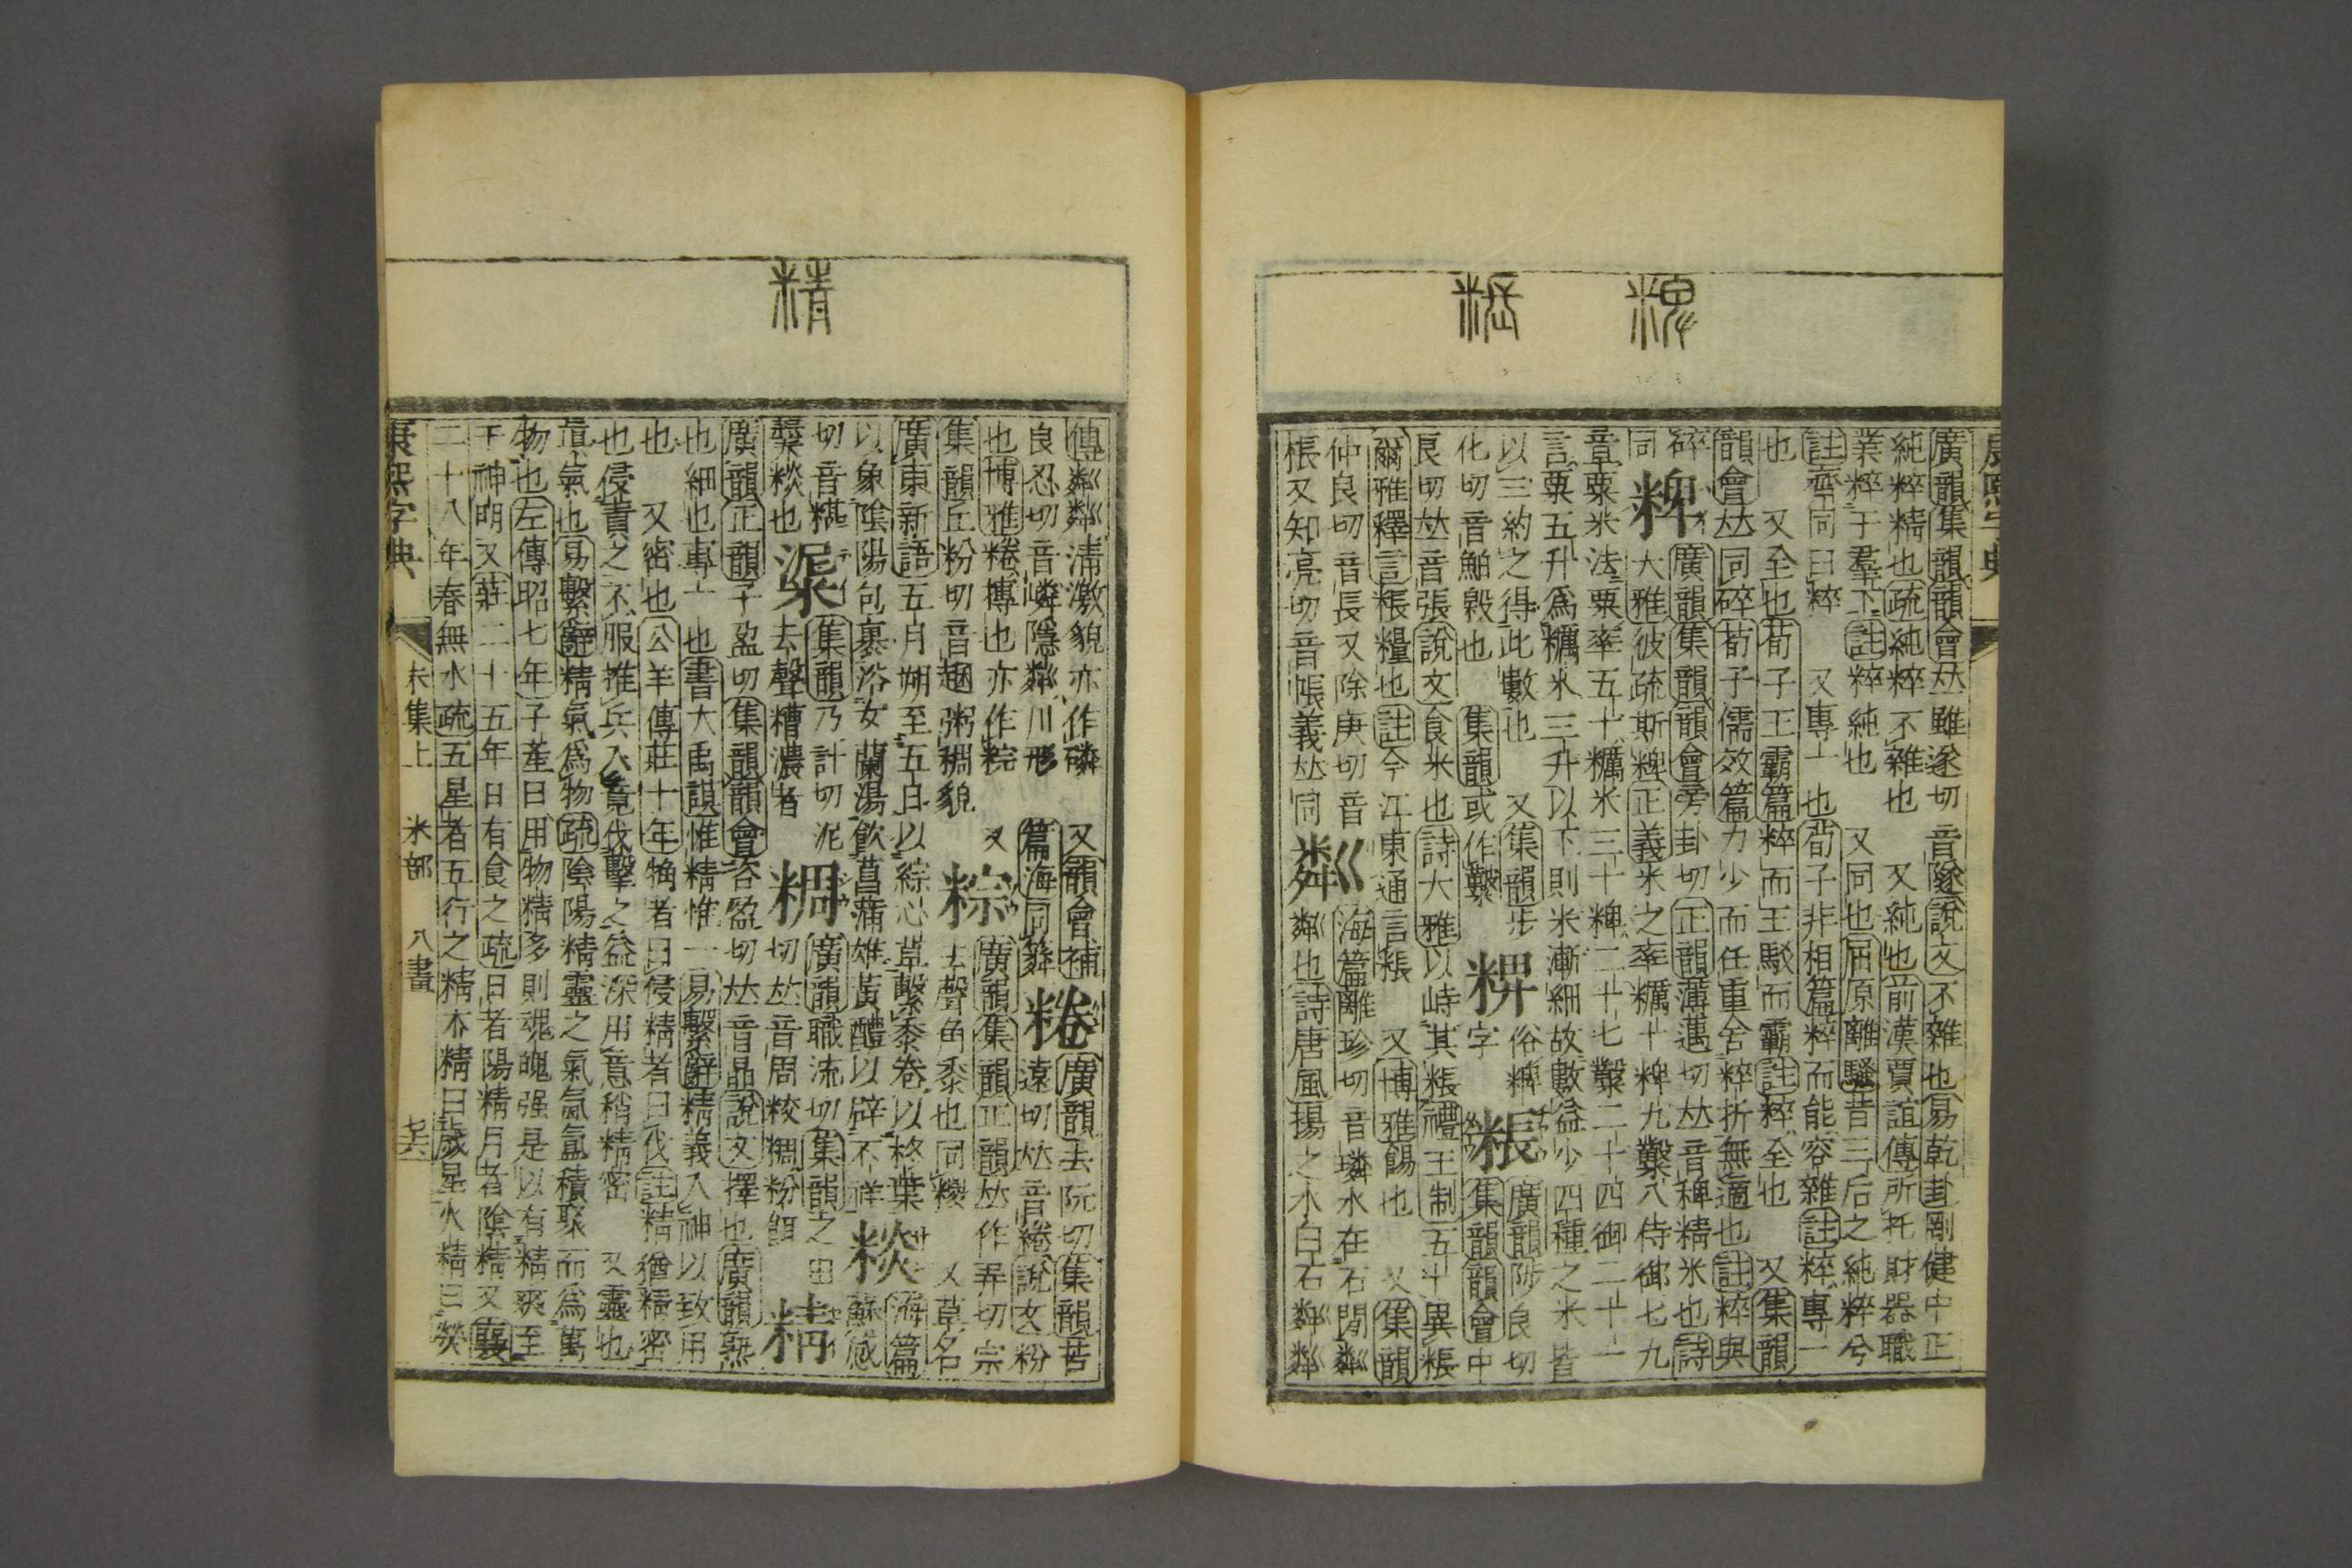 粺 粻
康熙字典
廣韻集韻韻會𠀤雖遂切音䆳說文不雜也易乾卦剛健中正
純粹精也疏純粹不雜也 又純也前漢賈誼傳所托財器職
業粹于羣下註粹純也 又同也屈原離騷昔三后之純粹兮
註齊同曰粹 又專一也荀子非相篇粹而能容雜註粹專一
也 又至也荀子王霸篇粹而王駁而霸註粹至也 又集韻
韻會𠀤同碎荀子儒效篇力少而任重舍粹折無適也註粹與
碎
同 粺 廣韻集韻韻會旁卦切正韻薄邁切𠀤音稗精米也詩
大雅彼疏斯粺正義米之率糲十粺九鑿八侍御七九
章粟米法粟率五十糲米三十粺二十七鑿二十四御二十一
言粟五升爲糲米三升以下則米漸細故數益少四種之米皆
以三約之得此數也 又集韻步
化切音𦨭穀也 集韻或作䊬 粺 俗粺
字 粻 廣韻陟良切
集韻韻會中
良切𠀤音張說文食米也詩大雅以峙其粻禮王制五十異粻
爾雅釋言粻糧也註今江東通言粻 又博雅餳也 又集韻
仲良切音長又除庚切音
棖又知亮切音帳義𠀤同 粼 海篇離珍切音璘水在石閒粼
粼也詩唐風揚之水白石粼粼
精
傳粼粼淸澈貌亦作磷 又韻會補
良忍切音嶙隱粼川形 篇海同粦 䊎 廣韻去阮切集韻苦
遠切𠀤音綣說文粉
也博雅䊎摶也亦作䊏 又
集韻丘粉切音趣粥稠貌 粽 廣韻集韻正韻𠀤作弄切宗
去聲角黍也同糉 又草名
廣東新語五月朔至五日以綜心草繫黍卷以柊葉
以象陰陽包裹浴女蘭湯飮菖蒲雄黃醴以辟不祥 䊏 海篇
蘇感
切音糂
糵䊏也 𥹆 集韻乃計切泥
去聲糟濃者 粷 廣韻職流切集韻之由
切𠀤音周䊏粷粉餌 精
廣韻正韻子盈切集韻韻會咨盈切𠀤音晶說文擇也廣韻熟
也細也專一也書大禹謨惟精惟一易繫辭精義入神以致用
也 又密也公羊傳莊十年觕者曰侵精者曰伐註精猶精密
也侵責之不服推兵入竟伐擊之益深用意稍精密 又靈也
眞氣也易繫辭精氣爲物疏陰陽精靈之氣氤氳積聚而爲萬
物也左傳昭七年子產曰用物精多則魂魄强是以有精爽至
于神明又莊二十五年日有食之疏日者陽精月者陰精又襄
二十八年春無水疏五星者五行之精木精曰歲星火精曰熒
康熙字典 未集上 米部 八畫 七六